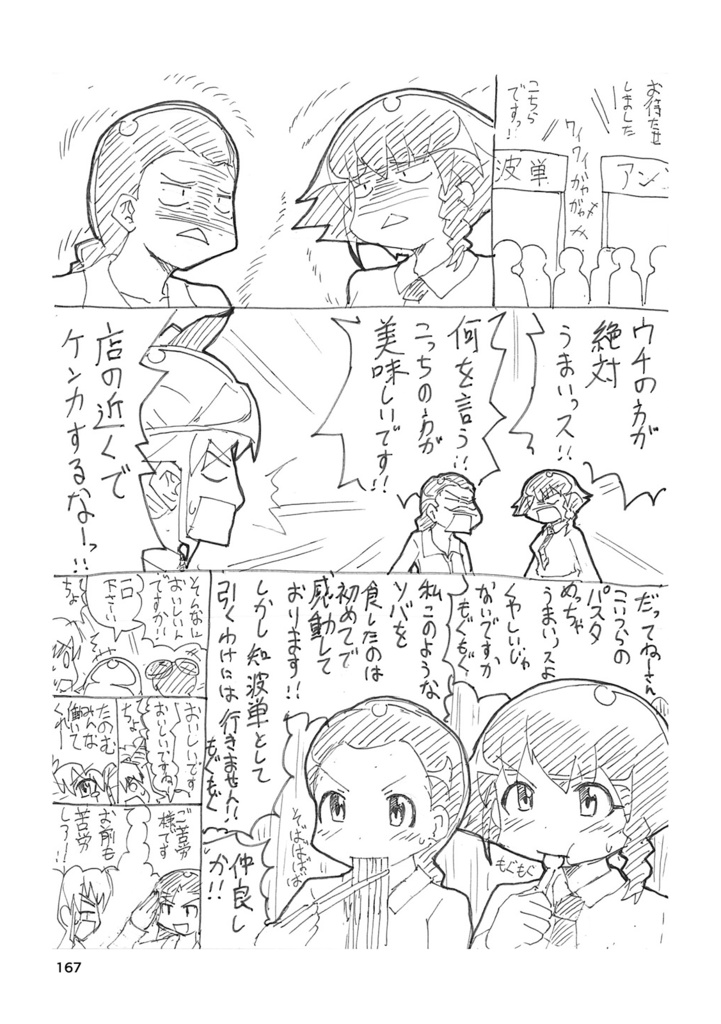 お待たせ
しました
こちら
ですっ!
ワイワイ
がやがや
波単
アン
ウチの方が
絶対
うまいっス!!
何を言う!!
こっちの方が
美味しいです!!
店の近くで
ケンカするなーっ!!
だってねーさん
こいつらの
パスタ
めっちゃ
うまいっスよ
くやしいじゃ
ないですか
もぐもぐ
私このような
ソバを
食したのは
初めてで
感動して
おります!!
しかし知波単として
引くわけには行きません!!
もぐもぐ
もぐもぐ
そばそばそば
仲良し
か!!
そんなに
おいしいん
ですか!!
一口
下さい
ちょ
おいしいです
おいしいですね
ちょ
たのむ
みんな
働いて
くれ
ご苦労
様です
お前も
苦労
しろ!!
167